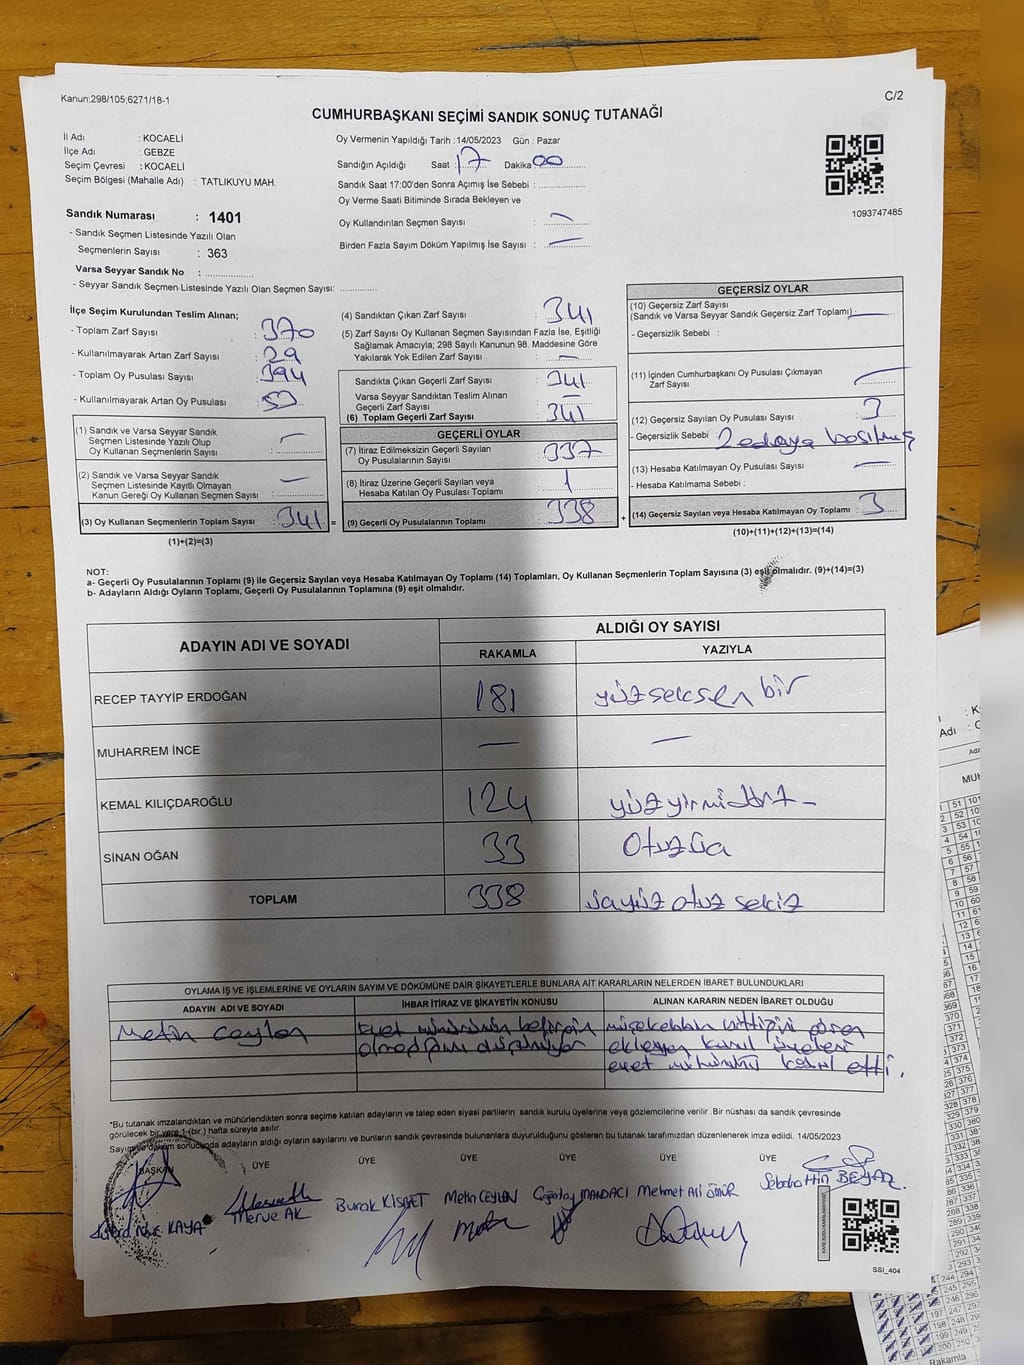 Kanun;298/105;6271/18-1
C/2
CUMHURBAŞKANI SEÇİMİ SANDIK SONUÇ TUTANAĞI
İl Adı : KOCAELİ
İlçe Adı : GEBZE
Seçim Çevresi : KOCAELİ
Seçim Bölgesi (Mahalle Adı) : TATLIKUYU MAH.
Oy Vermenin Yapıldığı Tarih : 14/05/2023 Gün : Pazar
Sandığın Açıldığı Saat : 17 Dakika 00
Sandık Saat 17:00'den Sonra Açımış İse Sebebi :
Oy Verme Saati Bitiminde Sırada Bekleyen ve
Oy Kullandırılan Seçmen Sayısı : —
Birden Fazla Sayım Döküm Yapılmış İse Sayısı : —
1093747485
Sandık Numarası : 1401
- Sandık Seçmen Listesinde Yazılı Olan
Seçmenlerin Sayısı : 363
Varsa Seyyar Sandık No :
- Seyyar Sandık Seçmen Listesinde Yazılı Olan Seçmen Sayısı:
İlçe Seçim Kurulundan Teslim Alınan;
- Toplam Zarf Sayısı : 370
- Kullanılmayarak Artan Zarf Sayısı : 29
- Toplam Oy Pusulası Sayısı : 394
- Kullanılmayarak Artan Oy Pusulası : 53
(1) Sandık ve Varsa Seyyar Sandık
Seçmen Listesinde Yazılı Olup
Oy Kullanan Seçmenlerin Sayısı : —
(2) Sandık ve Varsa Seyyar Sandık
Seçmen Listesinde Kayıtlı Olmayan
Kanun Gereği Oy Kullanan Seçmen Sayısı : —
(3) Oy Kullanan Seçmenlerin Toplam Sayısı : 341 =
(1)+(2)=(3)
(4) Sandıktan Çıkan Zarf Sayısı : 341
(5) Zarf Sayısı Oy Kullanan Seçmen Sayısından Fazla İse, Eşitliği
Sağlamak Amacıyla; 298 Sayılı Kanunun 98. Maddesine Göre
Yakılarak Yok Edilen Zarf Sayısı : —
Sandıkta Çıkan Geçerli Zarf Sayısı : 341
Varsa Seyyar Sandıktan Teslim Alınan
Geçerli Zarf Sayısı : —
(6) Toplam Geçerli Zarf Sayısı : 341
GEÇERLİ OYLAR
(7) İtiraz Edilmeksizin Geçerli Sayılan
Oy Pusulalarının Sayısı : 337
(8) İtiraz Üzerine Geçerli Sayılan veya
Hesaba Katılan Oy Pusulası Toplamı : 1
(9) Geçerli Oy Pusulalarının Toplamı : 338 +
GEÇERSİZ OYLAR
(10) Geçersiz Zarf Sayısı
(Sandık ve Varsa Seyyar Sandık Geçersiz Zarf Toplamı) : —
- Geçersizlik Sebebi :
(11) İçinden Cumhurbaşkanı Oy Pusulası Çıkmayan
Zarf Sayısı : —
(12) Geçersiz Sayılan Oy Pusulası Sayısı : 3
- Geçersizlik Sebebi : 2 adaya basılmış
(13) Hesaba Katılmayan Oy Pusulası Sayısı : —
- Hesaba Katılmama Sebebi :
(14) Geçersiz Sayılan veya Hesaba Katılmayan Oy Toplamı : 3
(10)+(11)+(12)+(13)=(14)
NOT:
a- Geçerli Oy Pusulalarının Toplamı (9) ile Geçersiz Sayılan veya Hesaba Katılmayan Oy Toplamı (14) Toplamları, Oy Kullanan Seçmenlerin Toplam Sayısına (3) eşit olmalıdır. (9)+(14)=(3)
b- Adayların Aldığı Oyların Toplamı, Geçerli Oy Pusulalarının Toplamına (9) eşit olmalıdır.
ADAYIN ADI VE SOYADI ALDIĞI OY SAYISI
RAKAMLA YAZIYLA
RECEP TAYYİP ERDOĞAN 181 yüzseksen bir
MUHARREM İNCE — —
KEMAL KILIÇDAROĞLU 124 yüzyirmidört
SİNAN OĞAN 33 Otuzüç
TOPLAM 338 üçyüz otuz sekiz
OYLAMA İŞ VE İŞLEMLERİNE VE OYLARIN SAYIM VE DÖKÜMÜNE DAİR ŞİKAYETLERLE BUNLARA AİT KARARLARIN NELERDEN İBARET BULUNDUKLARI
ADAYIN ADI VE SOYADI İHBAR İTİRAZ VE ŞİKAYETİN KONUSU ALINAN KARARIN NEDEN İBARET OLDUĞU
Metin Ceylan Evet mührünün belirgin
olmadığını düşünüyor
gören
kurul üyeleri
evet mührünü kabul etti.
*Bu tutanak imzalandıktan ve mühürlendikten sonra seçime katılan adayların ve talep eden siyasi partilerin sandık kurulu üyelerine veya gözlemcilerine verilir. Bir nüshası da sandık çevresinde
görülecek bir yere 1 (bir) hafta süreyle asılır.
Sayım ve döküm sonucunda adayların aldığı oyların sayılarını ve bunların sandık çevresinde bulunanlara duyurulduğunu gösteren bu tutanak tarafımızdan düzenlenerek imza edildi. 14/05/2023
BAŞKAN ÜYE ÜYE ÜYE ÜYE ÜYE ÜYE
KAYA Merve AK Burak KISMET Metin CEYLAN Çağatay MANDACI Mehmet Ali ÖMÜR Sebahattin BEYAZ
SSI_404